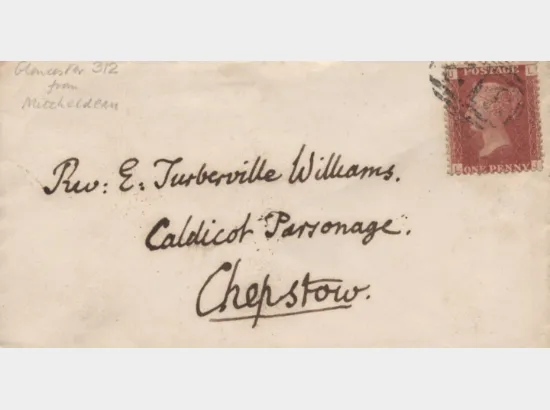 Gloucester 312
from
Mitcheldean
POSTAGE
ONE PENNY
Rev: E: Turberville Williams.
Caldicot Parsonage.
Chepstow.